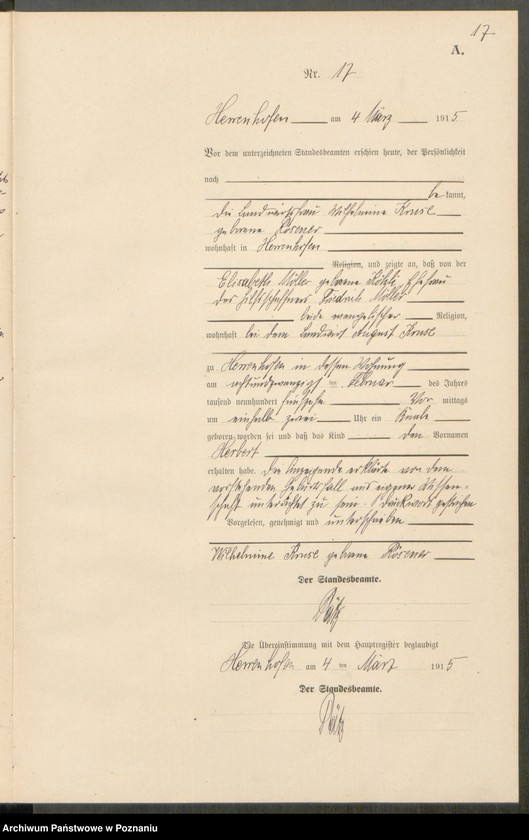 17
A.
Nr. 17
Herrenhofen am 4 März 1915
Vor dem unterzeichneten Standesbeamten erschien heute, der Persönlichkeit
nach
bekannt,
die Landwirtsfrau Wilhelmine Kruse
geborene Rösener
wohnhaft in Herrenhofen
Religion, und zeigte an, daß von der
Elisabeth Möller geborene Ehefrau
des Hilfsschaffners Friedrich Möller
beide evangelischer Religion,
wohnhaft bei dem Landwirt August Kruse
zu Herrenhofen in dessen Wohnung
am achtundzwanzigsten Februar des Jahres
tausend neunhundert fünfzehn Vor mittags
um einhalb zwei Uhr ein Knabe
geboren worden sei und daß das Kind den Vornamen
Herbert
erhalten habe. Die Anzeigende erklärte von dem
vorstehenden Geburtsfall aus eigener Wissen-
schaft unterrichtet zu sein. 1 Druckwort gestrichen
Vorgelesen, genehmigt und unterschrieben
Wilhelmine Kruse geborene Rösener
Der Standesbeamte.
Die Übereinstimmung mit dem Hauptregister beglaubigt
Herrenhofen am 4 ten März 1915
Der Standesbeamte.
Archiwum Państwowe w Poznaniu